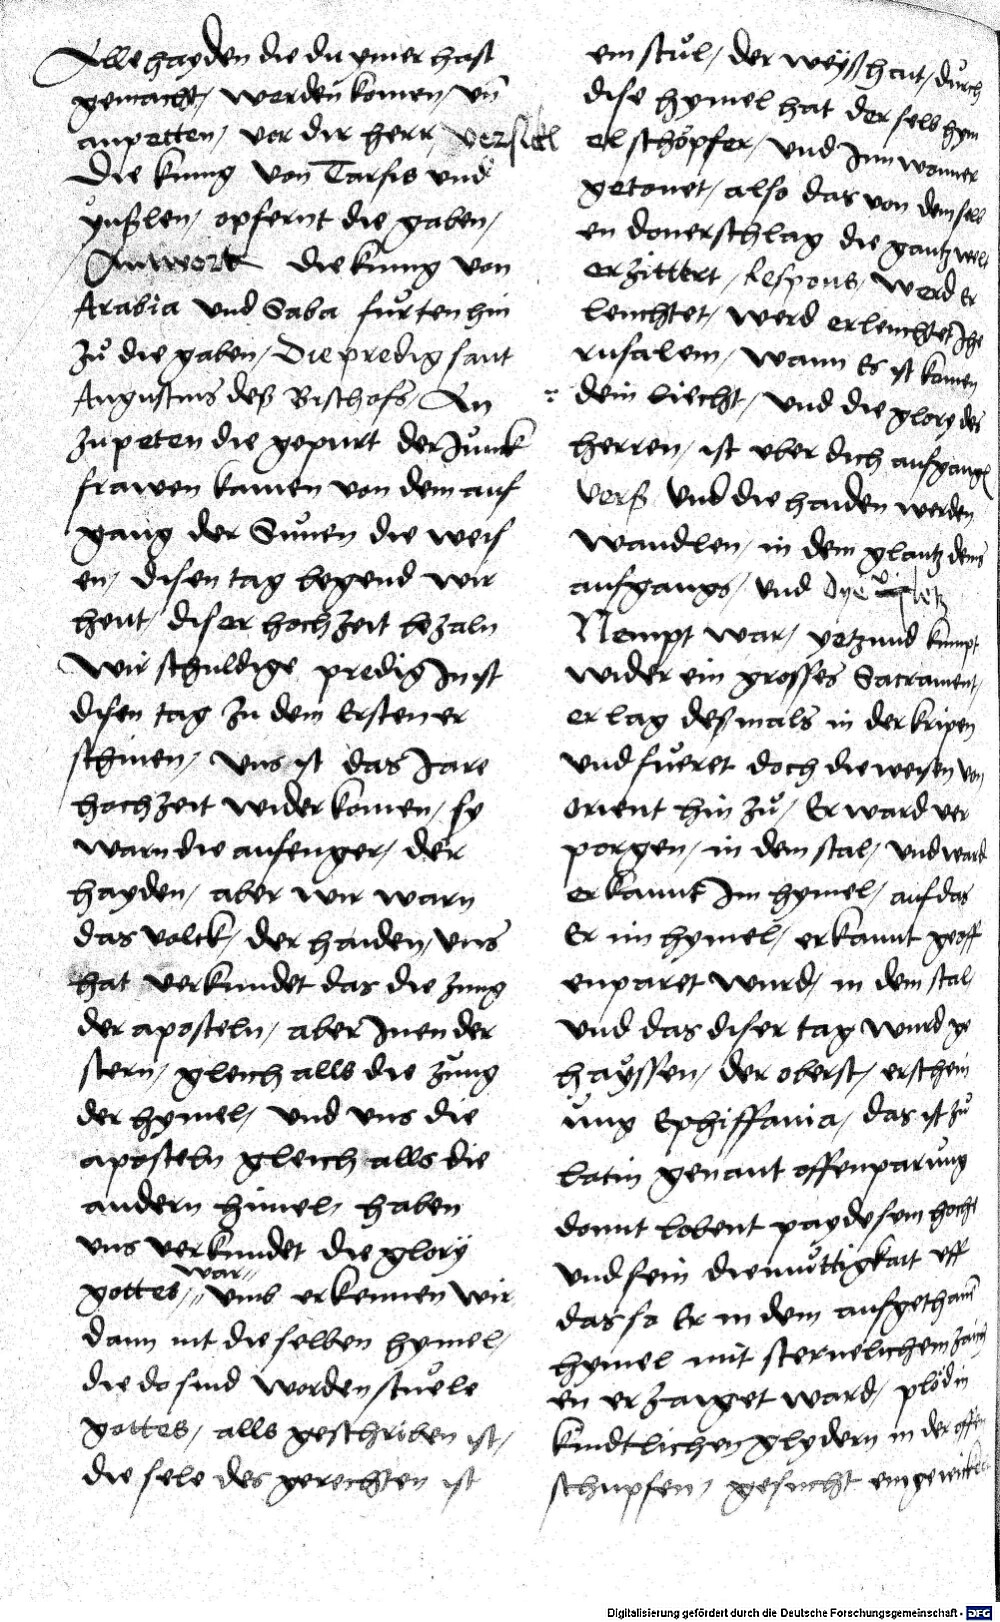 Alle hayden die du ymer hast
gemacht / werden komen / un̄
anpetten / vor dir herr / versickl
Die kunig von Tarsis und
ynßlen / opfernt die gaben /
Antwort die kunig von
Arabia und Saba fürten hin
zů die gaben / Die predig sant
Augustins deß Bischofs / An
zu peten die gepurt der Junck
frawen kamen von dem auf
gang der Sunen die weis
en / disen tag begend wir
heut / diser hochzeit bezaln
wir schuldige predig In ist
disen tag zu dem Ersten er
schinen / uns ist das Jare
hochzeit wider komen / sy
warn die anfenger / der
hayden / aber wir warn
das volck / der haiden / uns
hat verkundet das die zung
der aposteln / aber Inen der
stern / gleich alls die zung
der hymel / und uns die
aposteln gleich alls die
andern himel / haben
uns verkundet die glory
gottes / war umb erkennen wir
dann nit dieselben hymel /
die do sind worden stuele
gottes / alls geschriben ist /
die sele des gerechten ist
ein stůl / der weyßhait / durch
dise hymel hat der selb hym
el schöpfer / und Inn woner
getonet / also das von demselb
en donerschlag die gantz welt
erzittert / Respons / werd er
leuchtet / werd erleuchtet Ihe
rusalem / wann Es ist komen
dein liecht / und die glory des
herren / ist uber dich aufgangen
Verß und die haiden werden
wandlen / in dem glantz deins
aufgangs / und dye
Nempt war / yetzund kumpt
wider ein grosses Sacrament /
er lag deßmals in der kripen
und fueret doch die weisen von
orient hin zů / Er ward ver
porgen / in dem stal / und ward
erkannt Im hymel / auf das
Er im hymel / erkannt geoff
enparet wurd / in dem stal /
und das diser tag wurd ge
hayssen / der oberst / erschein
ung Ephiffania / das ist zů
latin genant offenparung
domit lobent payde sein hoche
und sein diemuttigkait uff
das so Er in dem aufgethanē
hymel mit sternelichem zaich
en erzaiget ward / plöd in
kindtlichen glydern in der offen
schupfen / gesucht eingewickelt